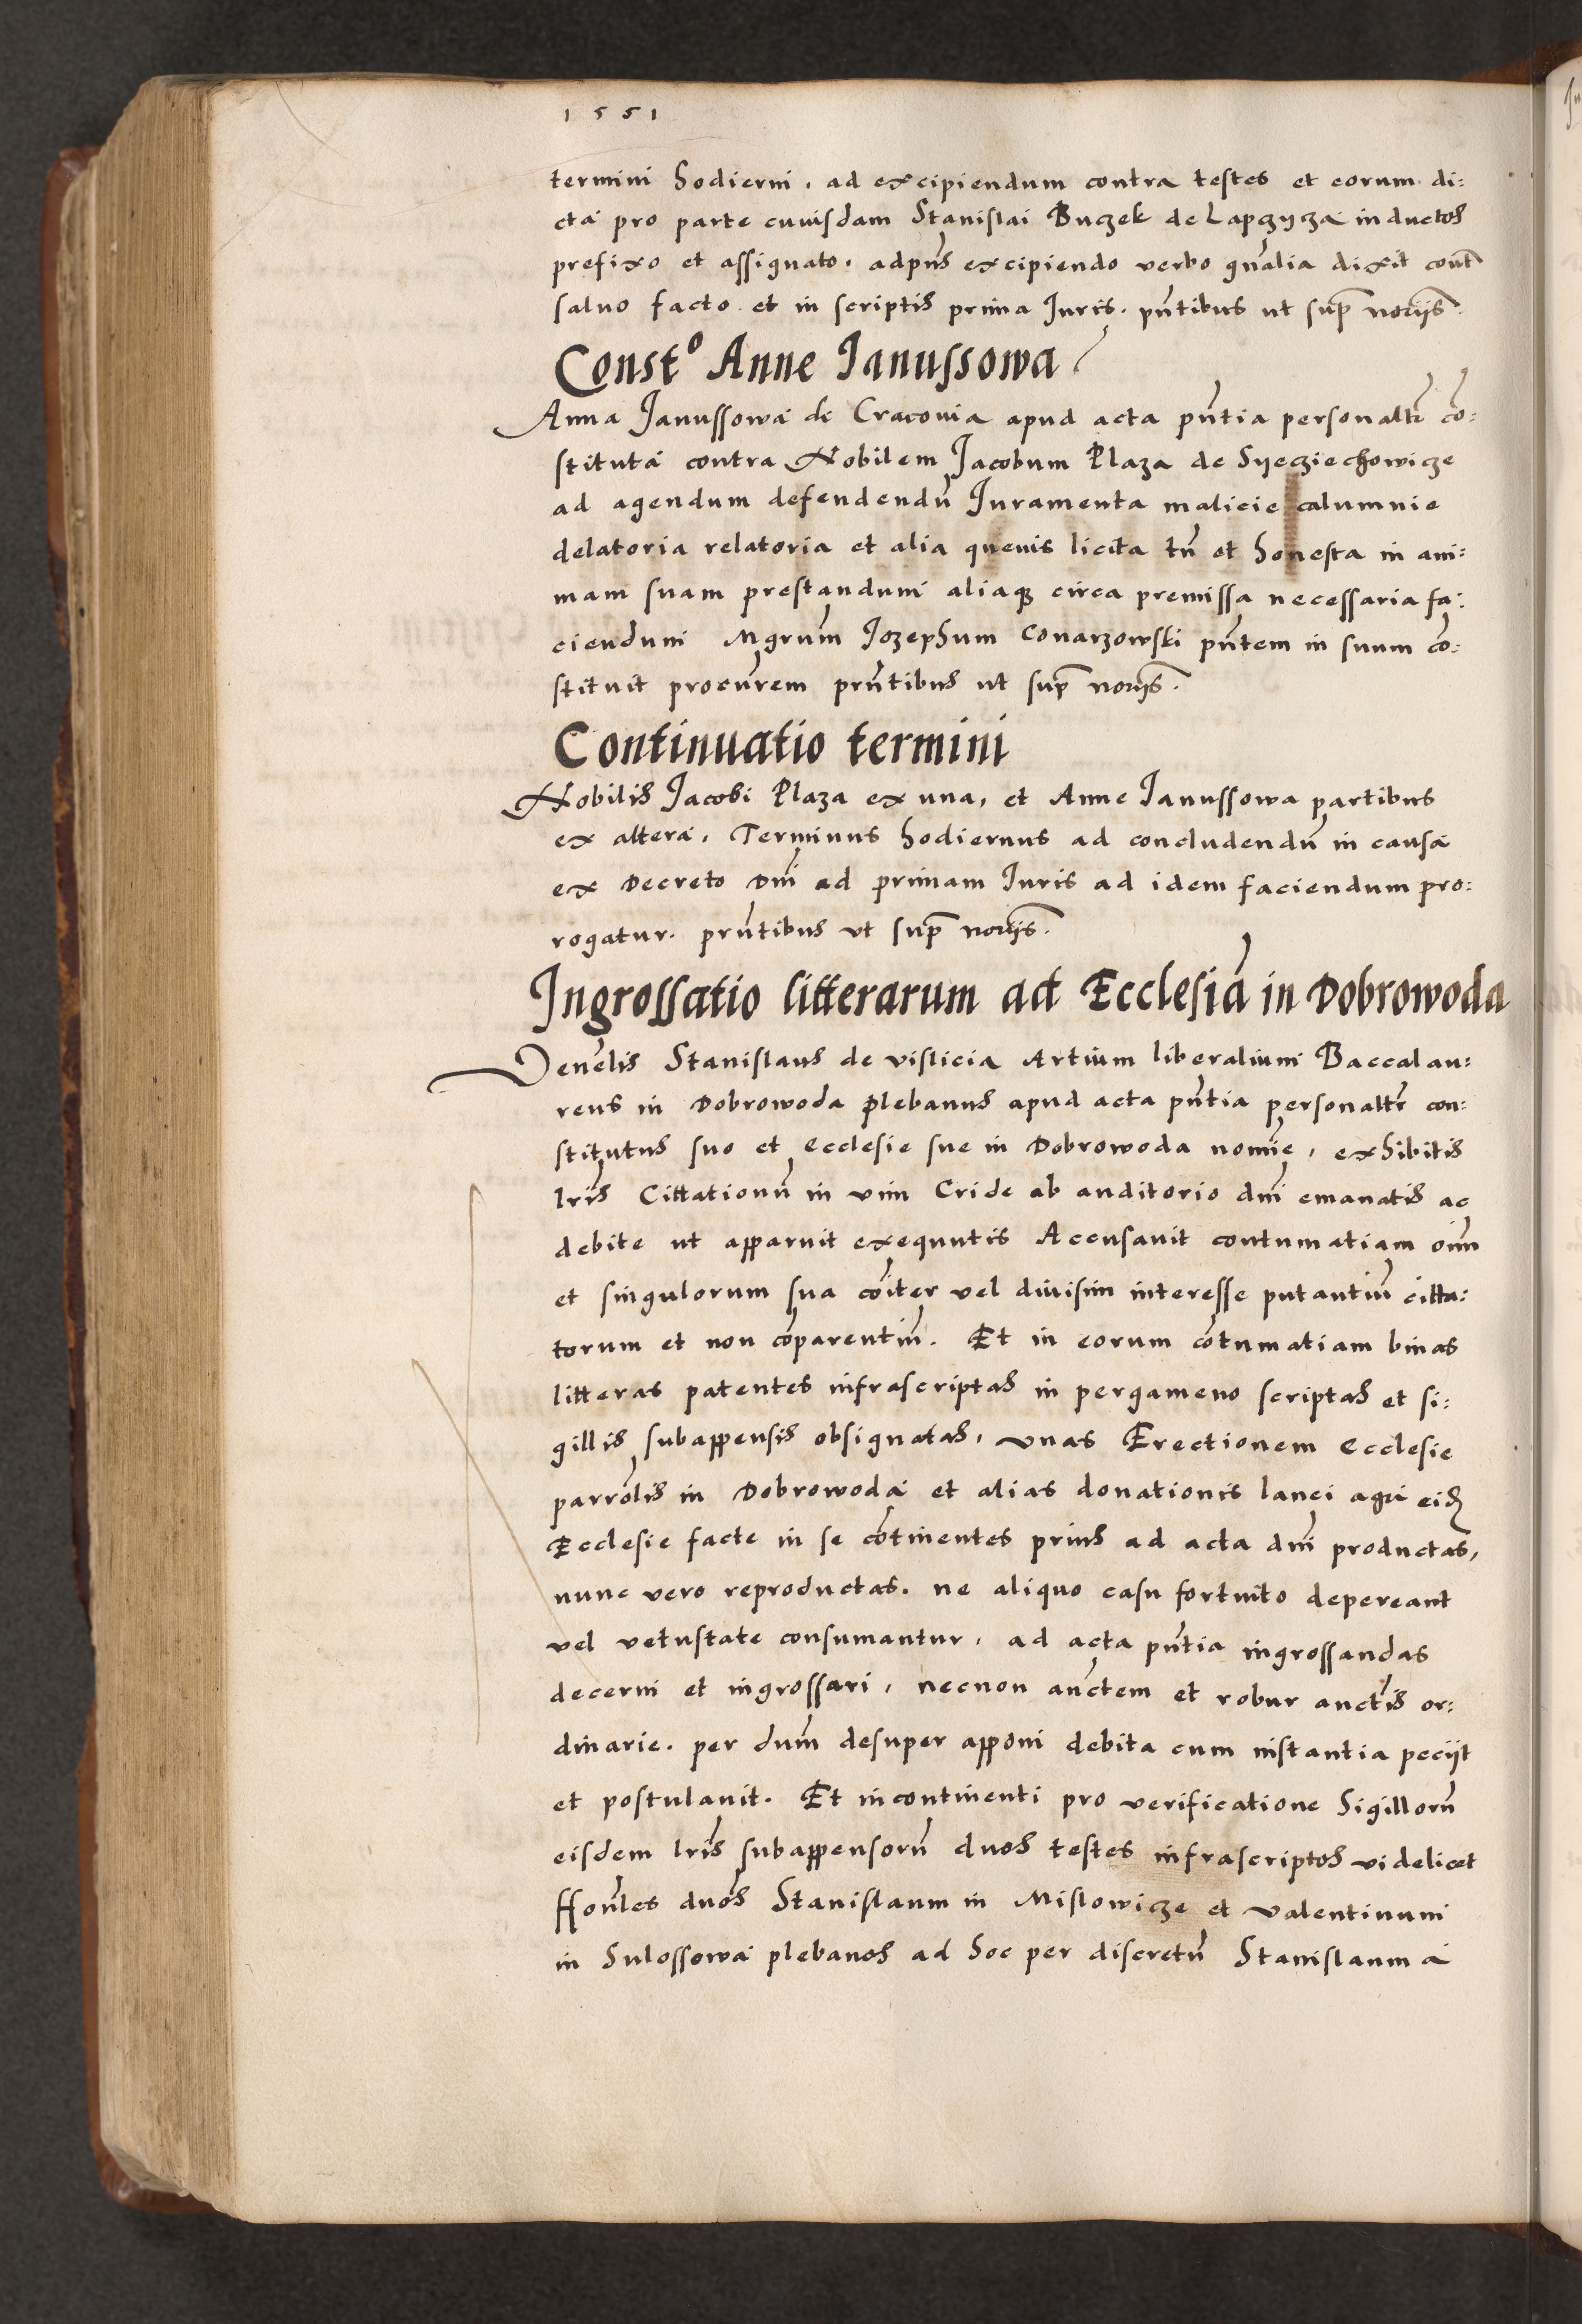 1551
termini hodierni, ad excipiendum contra testes et eorum di:
cta pro parte cuiusdam Stanislai Buczek de Lapczycza inductos
prefixo et assignato. adpñs excipiendo verbo gñalia dixit
salvo facto et in scriptis prima Iuris. pñtibus ut sup noriis.
Const° Anne Ianussowa
Anna Janussowa de Cracovia apud acta pñtia personaltr cō:
stituta contra Nobilem Jacobum Plaza de Syecziechowicze
ad agendum defendendū Juramenta malicie calumnie
delatoria relatoria et alia quevis licita tñ et honesta in ani:
mam suam prestandum aliaq circa premissa necessaria fa:
ciendum Mgrum Iozephum Conarzowski pñtem in suum cō:
stituit procurem prñtibus ut sup noriis.
Continuatio termini
Nobilis Jacobi Plaza ex una, et Anne Janussowa partibus
ex altera. Terminus hodiernus ad concludendū in causa
ex Decreto Dni ad primam Iuris ad idem faciendum pro:
rogatur. prñtibus ut sup noriis.
Ingrossatio litterarum ad Ecclesiā in Dobrowoda
Venēlis Stanislaus de vislicia Artium liberalium Baccalau:
reus in Dobrowoda plebanus apud acta pñtia personaltr con:
stitutus suo et Ecclesie sue in Dobrowoda nomīe, exhibitis
lris Cittationū in vim Cride ab auditorio dni emanatis ac
debite ut apparuit exequutis Accusavit contumatiam oīm
et singulorum sua cōiter vel divisim interesse putantiū citta:
torum et non cōparentiū. Et in eorum cōtumatiam binas
litteras patentes infrascriptas in pergameno scriptas et si:
gillis subappensis obsignatas, unas Erectionem Ecclesie
parrōlis in Dobrowoda et alias donationis lanei agri eid
Ecclesie facte in se cōtinentes prius ad acta dni productas,
nunc vero reproductas. ne aliquo casu fortuito depereant
vel vetustate consumantur, ad acta pñtia ingrossandas
decerni et ingrossari, necnon auctem et robur auctis or:
dinarie. per dum desuper apponi debita cum instantia peciit
et postulavit. Et incontinenti pro verificatione Sigillorū
eisdem lris subappensorū duos testes infrascriptos videlicet
Honles dnos Stanislaum in Mislowicze et Valentinum
in Sulossowa plebanos ad hoc per discretū Stanislaum a